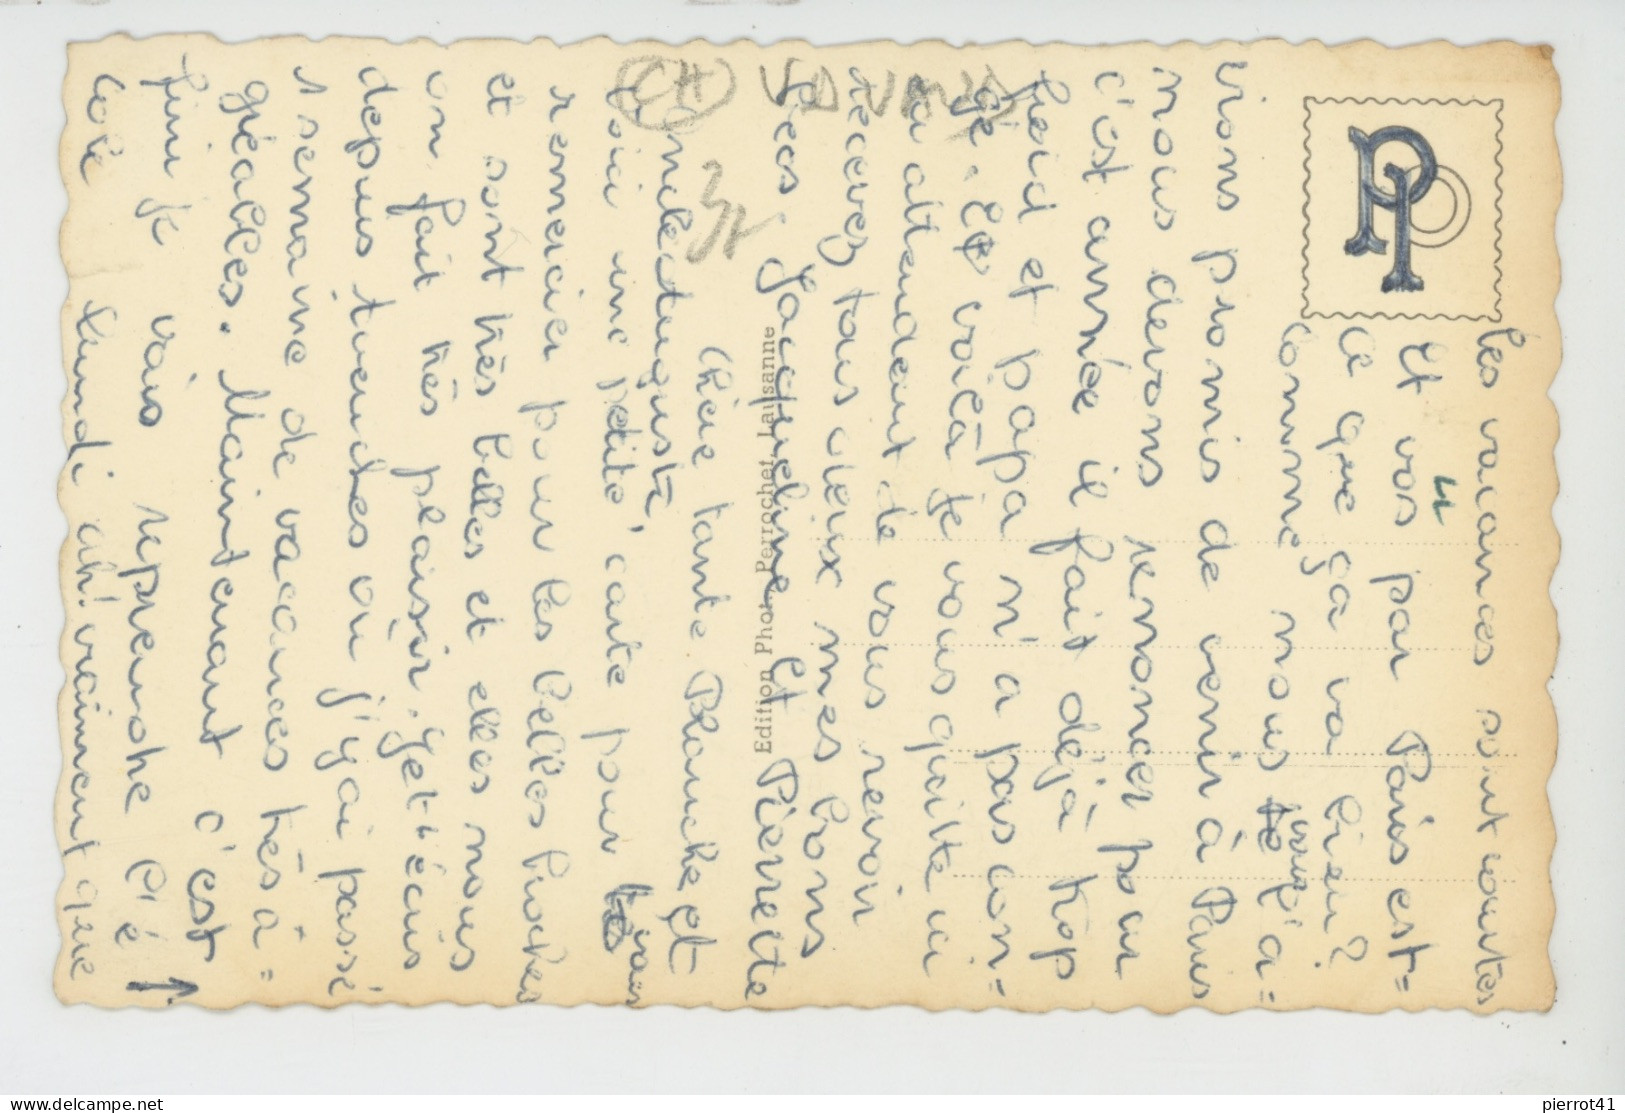 Chère tante Blanche et
oncle Auguste,
Voici une petite carte pour vous
remercier pour les belles broches
et sont très belles et elles nous
on fait très plaisir. Je t'écris
depuis ou j'y ai passé
1 semaine de vacances très a=
gréables. Maintenant c'est
fini je vais reprendre l'é
cole lundi ah! vraiment que
les vacances sont courtes
Et vos par Paris est=
ce que ça va bien?
Comme nous vous a=
vions promis de venir à Paris
nous devons renoncer pour
c'est année il fait déjà trop
froid et papa n'a pas con=
gé. Et voilà je vous quite ici
en attendant de vous revoir
recevez tous deux mes bons
becs. Jacqueline Et Pierrette
Edition Phot. Perrochet, Lausanne
CH
VD
4
www.delcampe.net
pierrot41